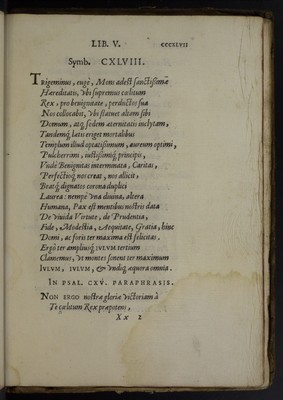 LIB. V. CCCXLVII
Symb. CXLVIII.
TErgeminus, eugè, Mons adest sanctissimæ
Hæreditatis, vbi supremus cælitum
Rex, pro benignitate, perductos sua
Nos collocabit, vbi statuet altam sibi
Domum, atq; sedem æternitatis inclytam,
Tandemq; lætis eriget mortalibus
Templum illud optatissimum, aureum optimi,
Pulcherrimi, iustissimiq; principis,
Vnde Benignitas interminata, Caritas,
Perfectiosq; nos creat, nos allicit,
Beatq; dignatos corona duplici
Laurea: nempe vna diuina, altera
Humana, Pax est mentibus nostris data
De viuida Virtute, de Prudentia,
Fide, Modestia, Aequitate, Gratia, hinc
Domi, ac foris ter maxima est felicitas.
Ergò ter ampliusq; IVLVM tertium
Clamemus, vt montes sonent ter maximum
IVLVM, IVLVM, & vndiq; æquora omnia.
IN PSAL. CXV. PARAPHRASIS.
NON ERGO nostræ gloriæ victoriam à
Te cælitum Rex præpotens,
Xx 2